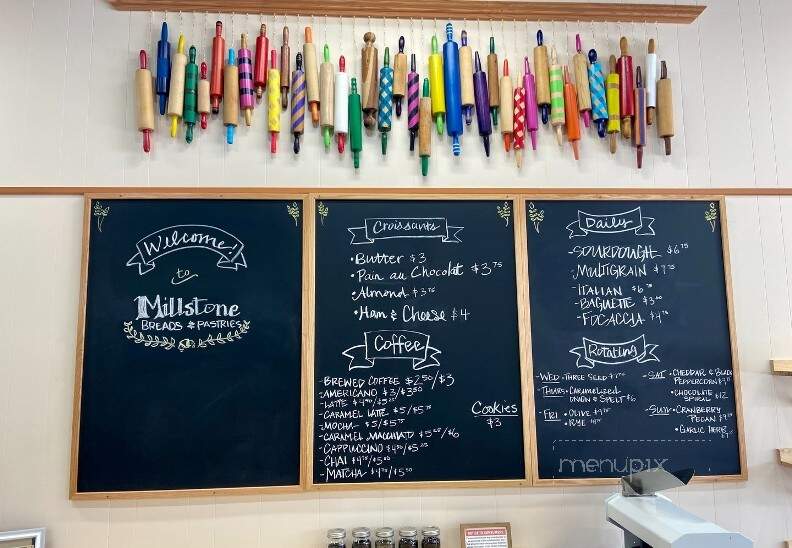 Welcome!
to
Millstone
BREADS & PASTRIES
Croissants
• Butter $3
• Pain au Chocolat $3.75
• Almond $3.75
• Ham & Cheese $4
Coffee
- BREWED COFFEE $2.50/$3
- AMERICANO $3/$3.50
- LATTE $4.50/$5.25
- CARAMEL LATTE $5/$5.75
- MOCHA $5/$5.75
- CARAMEL MACCHIATO /$6
- CAPPUCCINO $4.50/$5.25
- CHAI
- MATCHA $4.75/$5.50
Cookies
$3
Daily
- SOURDOUGH $6.75
- MULTIGRAIN
- ITALIAN $6
- BAGUETTE
- FOCACCIA
Rotating
- WED • THREE SEED
- THURS • Caramelized
ONION & SPELT $6
FRI • OLIVE
• RYE
- SAT • CHEDDAR & BLACK
PEPPERCORN
• CHOCOLATE
SPIRAL $12
- SUN • CRANBERRY
PECAN
• GARLIC HERB
menupix